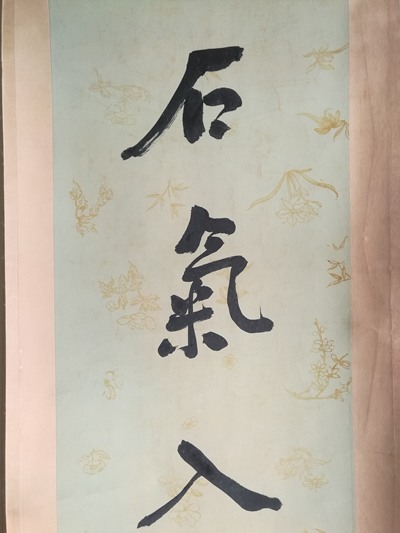 石氣入